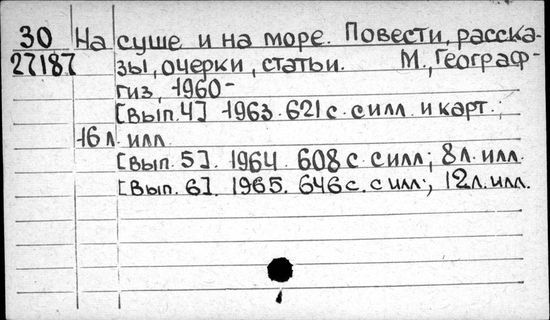 30 На суше и на море. Повести, расска-
27187 зы, очерки, статьи. М., Географ-
гиз, 1960-
[Вып. 4] 1963. 621 с. с илл. и карт.;
16 л. илл.
[Вып. 5]. 1964. 608 с. с илл.; 8 л. илл.
[Вып. 6]. 1965. 646 с. с илл.; 12 л. илл.